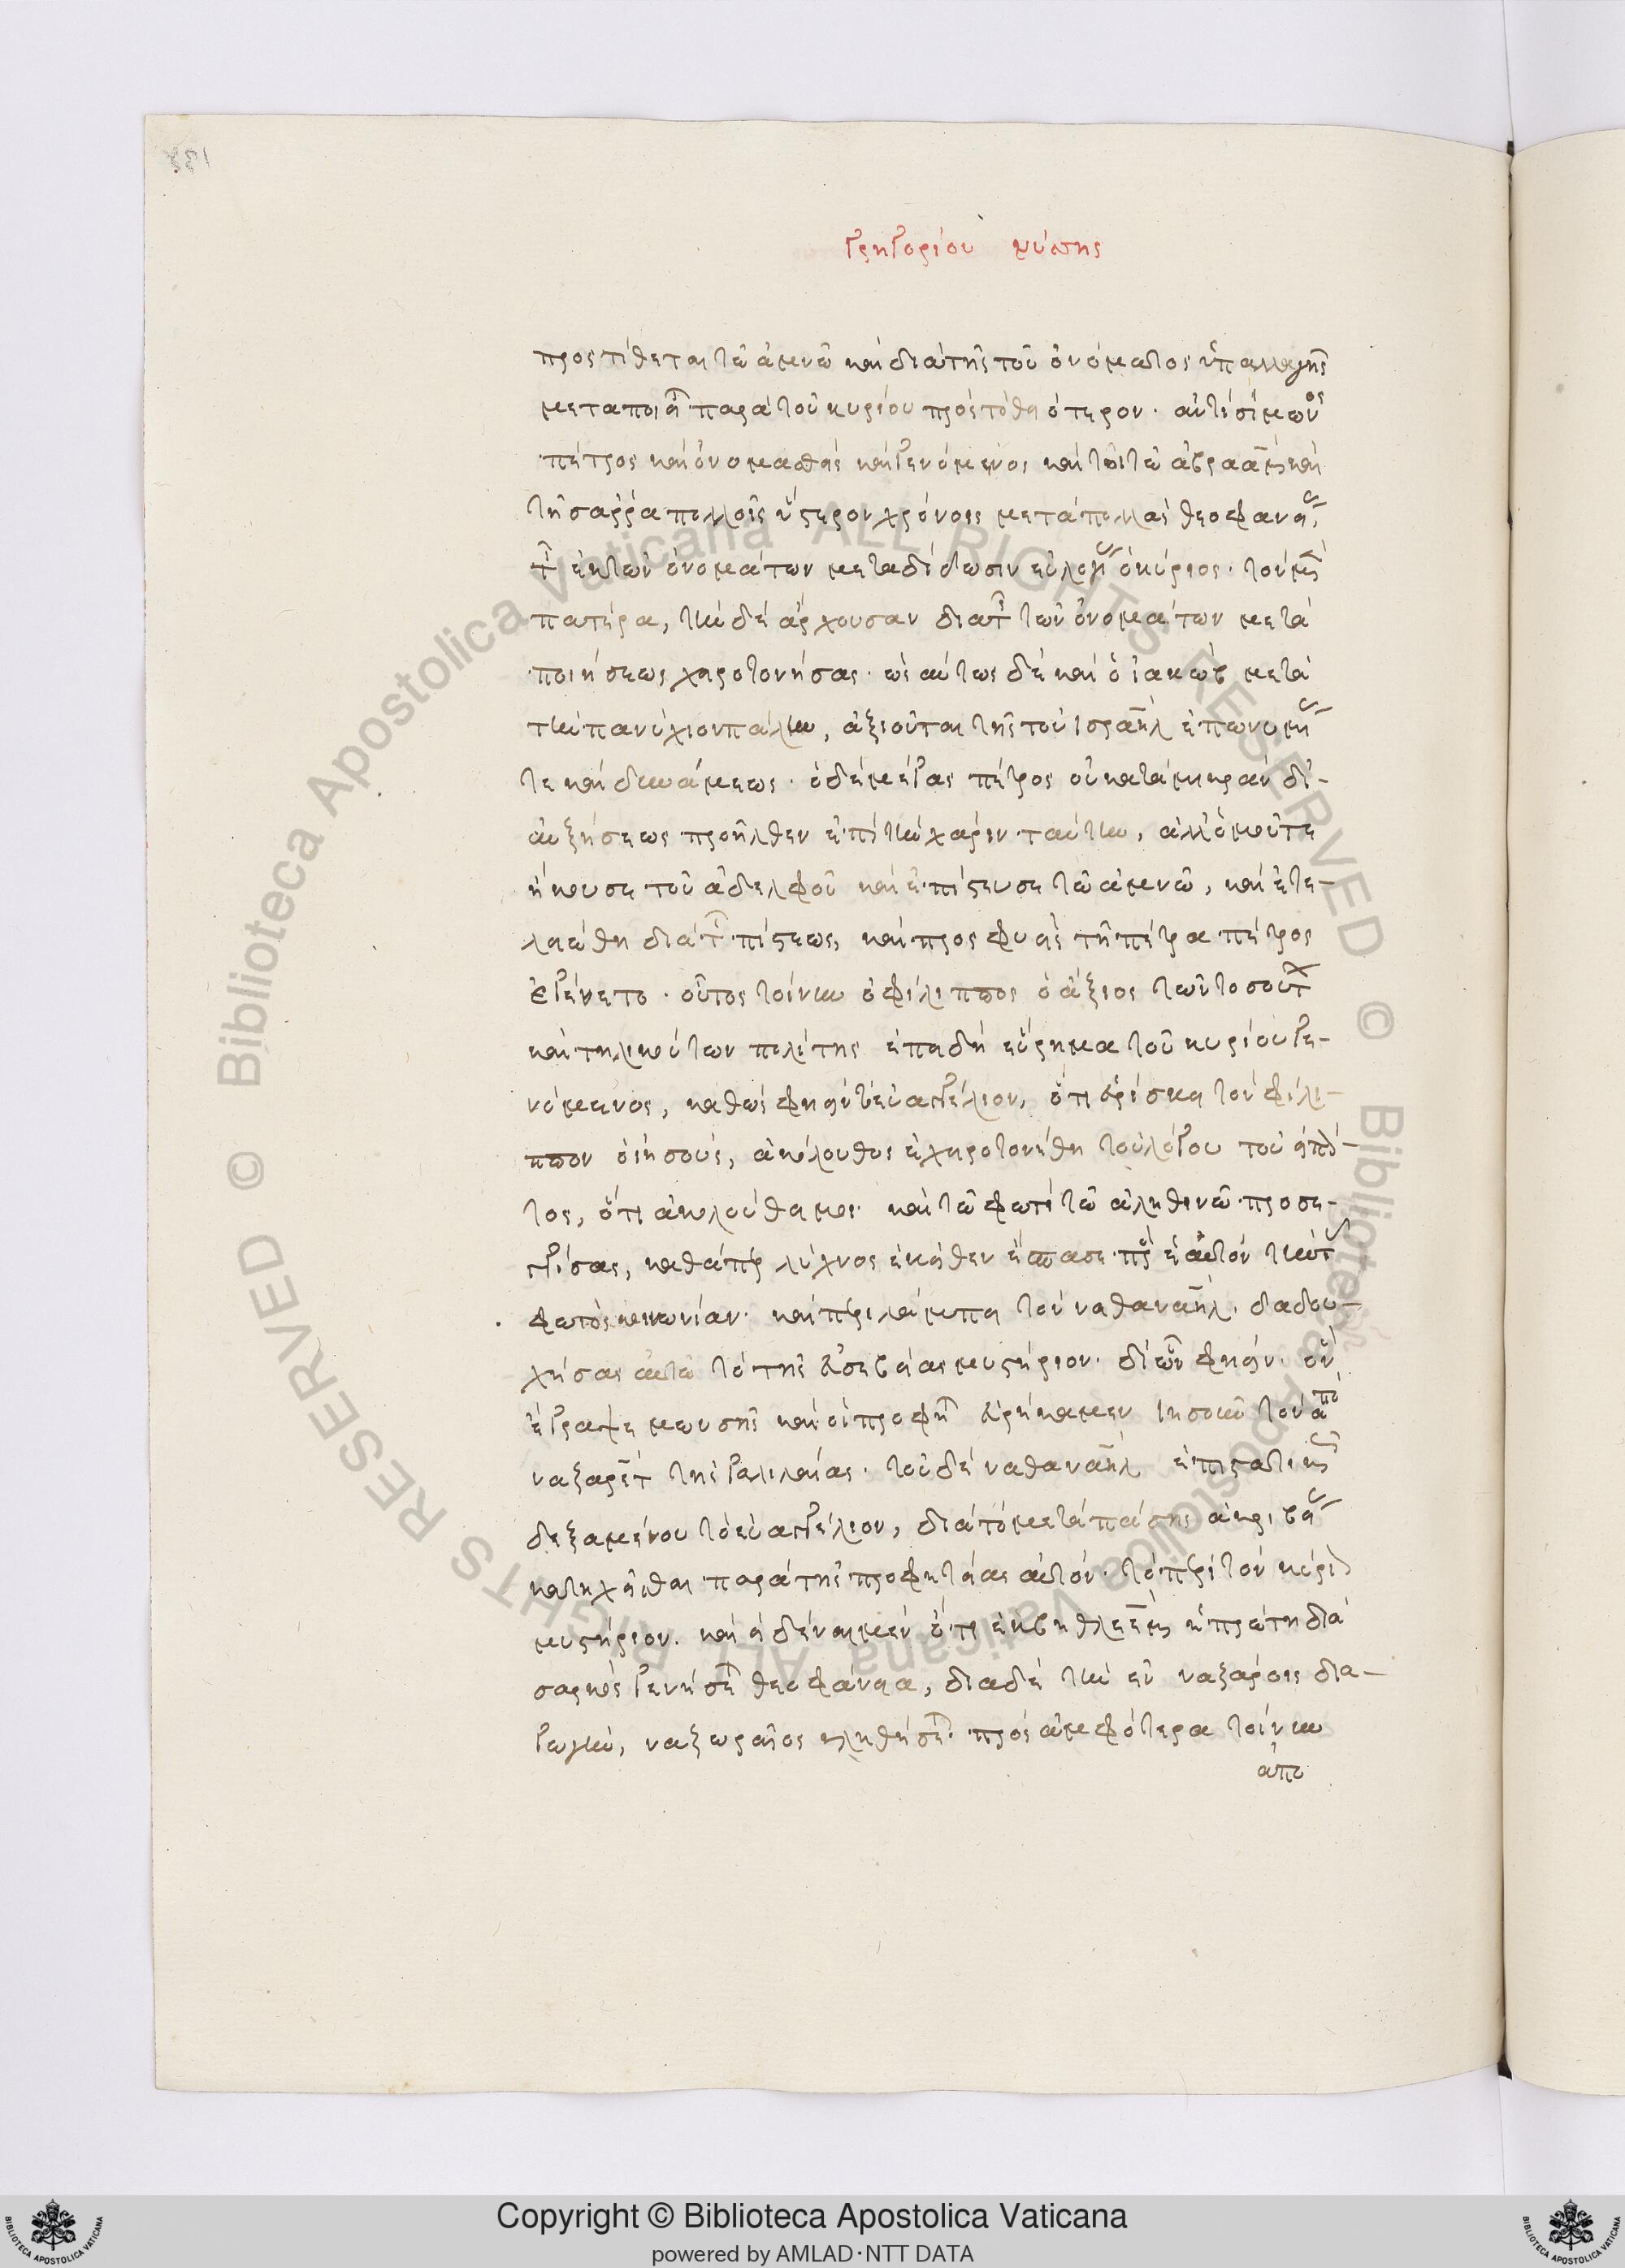 γρηγορίου νύσης
προστίθεται τῶ ἀμνῶ καὶ διὰ τῆς τοῦ ὀνόματος ὑπαλλαγῆς
μεταποιεῖται παρὰ τοῦ κυρίου πρὸς τὸ θειότερον. ἀντὶ σίμωνος
πέτρος καὶ ὀνομασθεὶς καὶ γενόμενος. καίτοι τῶ ἀβραὰμ καὶ
τῆ σάρρα πολλοῖς ὕστερον χρόνοις μετὰ πολλὰς θεοφανείας,
τῆς ἐκ τῶν ὀνομάτων μεταδίδωσιν εὐλογίας ὁ κύριος. τὸν μὲν
πατέρα, τὴν δὲ ἄρχουσαν διὰ τῆς τῶν ὀνομάτων μετα
ποιήσεως χειροτονήσας. ὡσαύτως δὲ καὶ ὁ ἰακὼβ μετὰ
τὴν παννύχιον πάλην, ἀξιοῦται τῆς τοῦ ἰσραὴλ ἐπωνυμίας
τε καὶ δυνάμεως. ὁ δὲ μέγας πέτρος οὐ κατὰ μικρὰν δι-
αυξήσεως προῆλθεν ἐπὶ τὴν χάριν ταύτην, ἀλλ' ὁμοῦ τε
ἤκουσε τοῦ ἀδελφοῦ καὶ ἐπίστευσε τῶ ἀμνῶ, καὶ ἐτε-
λειώθη διὰ τῆς πίστεως, καὶ προσφυεὶς τῆ πέτρα πέτρος
ἐγένετο. οὗτος τοίνυν ὁ φίλιππος ὁ ἄξιος τῶν τοσούτων
καὶ τηλικούτων πολίτης ἐπειδὴ εὕρημα τοῦ κυρίου γε-
νόμενος, καθώς φησι τὸ εὐαγγέλιον, ὅτι εὑρίσκει τὸν φίλι-
ππον ὁ ἰησοῦς, ἀκόλουθος ἐχειροτονήθη τοῦ λόγου τοῦ εἰπόν-
τος, ὅτι ἀκολούθει μοι. καὶ τῶ φωτὶ τῶ ἀληθινῶ προσε-
γγίσας, καθάπερ λύχνος ἐκεῖθεν ἔσπασε πρὸς ἑαυτὸν τὴν τοῦ
φωτὸς κοινωνίαν. καὶ περιλάμπει τὸν ναθαναὴλ. δαδου-
χήσας αὐτῶ τὸ τῆς εὐσεβείας μυστήριον. δι' ὧν φησιν. ὃν
ἔγραψε μωυσῆς καὶ οἱ προφῆται εὑρήκαμεν ἰησοῦν τὸν ἀπὸ
ναζαρὲτ τῆς γαλιλαίας. τοῦ δὲ ναθαναὴλ ἐπιστατικῶς
δεξαμένου τὸ εὐαγγέλιον, διὰ τὸ μετὰ πάσης ἀκριβείας
κατηχῆσθαι παρὰ τῆς προφητείας αὐτὸν. τὸ περὶ τὸν κύριον
μυστήριον. καὶ εἰδέναι μὲν ὅτι ἐκ βηθλεὲμ ἡ πρώτη διὰ
σαρκὸς γενήσεται θεοφάνεια, διὰ δὲ τὴν ἐν ναζαρίοις δια-
γωγὴν, ναζωραῖος κληθήσεται. πρὸς ἀμφότερα τοίνυν
ἀπο